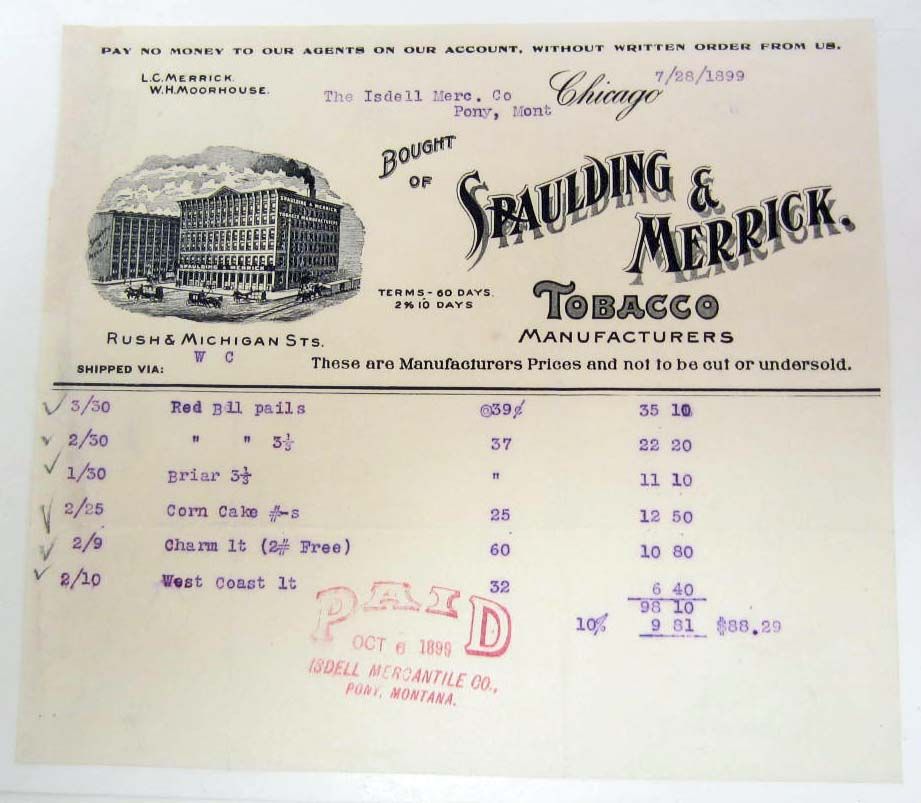 PAY NO MONEY TO OUR AGENTS ON OUR ACCOUNT, WITHOUT WRITTEN ORDER FROM US.
L.C. MERRICK.
W.H. MOORHOUSE.
The Isdell Merc. Co
Pony, Mont
Chicago 7/28/1899
BOUGHT
OF
SPAULDING &
MERRICK.
SPAULDING & MERRICK
TOBACCO MANUFACTURERS
SPAULDING & MERRICK
TERMS - 60 DAYS.
2% 10 DAYS
TOBACCO
MANUFACTURERS
RUSH & MICHIGAN STS.
SHIPPED VIA: W C
These are Manufacturers Prices and not to be cut or undersold.
3/30 Red Bll pails @39¢ 35 10
2/30 " " 3⅓ 37 22 20
1/30 Briar 3⅓ " 11 10
2/25 Corn Cake #-s 25 12 50
2/9 Charm lt (2# Free) 60 10 80
2/10 West Coast lt 32 6 40
98 10
10% 9 81 $88.29
PAID
OCT 6 1899
ISDELL MERCANTILE CO.,
PONY, MONTANA.